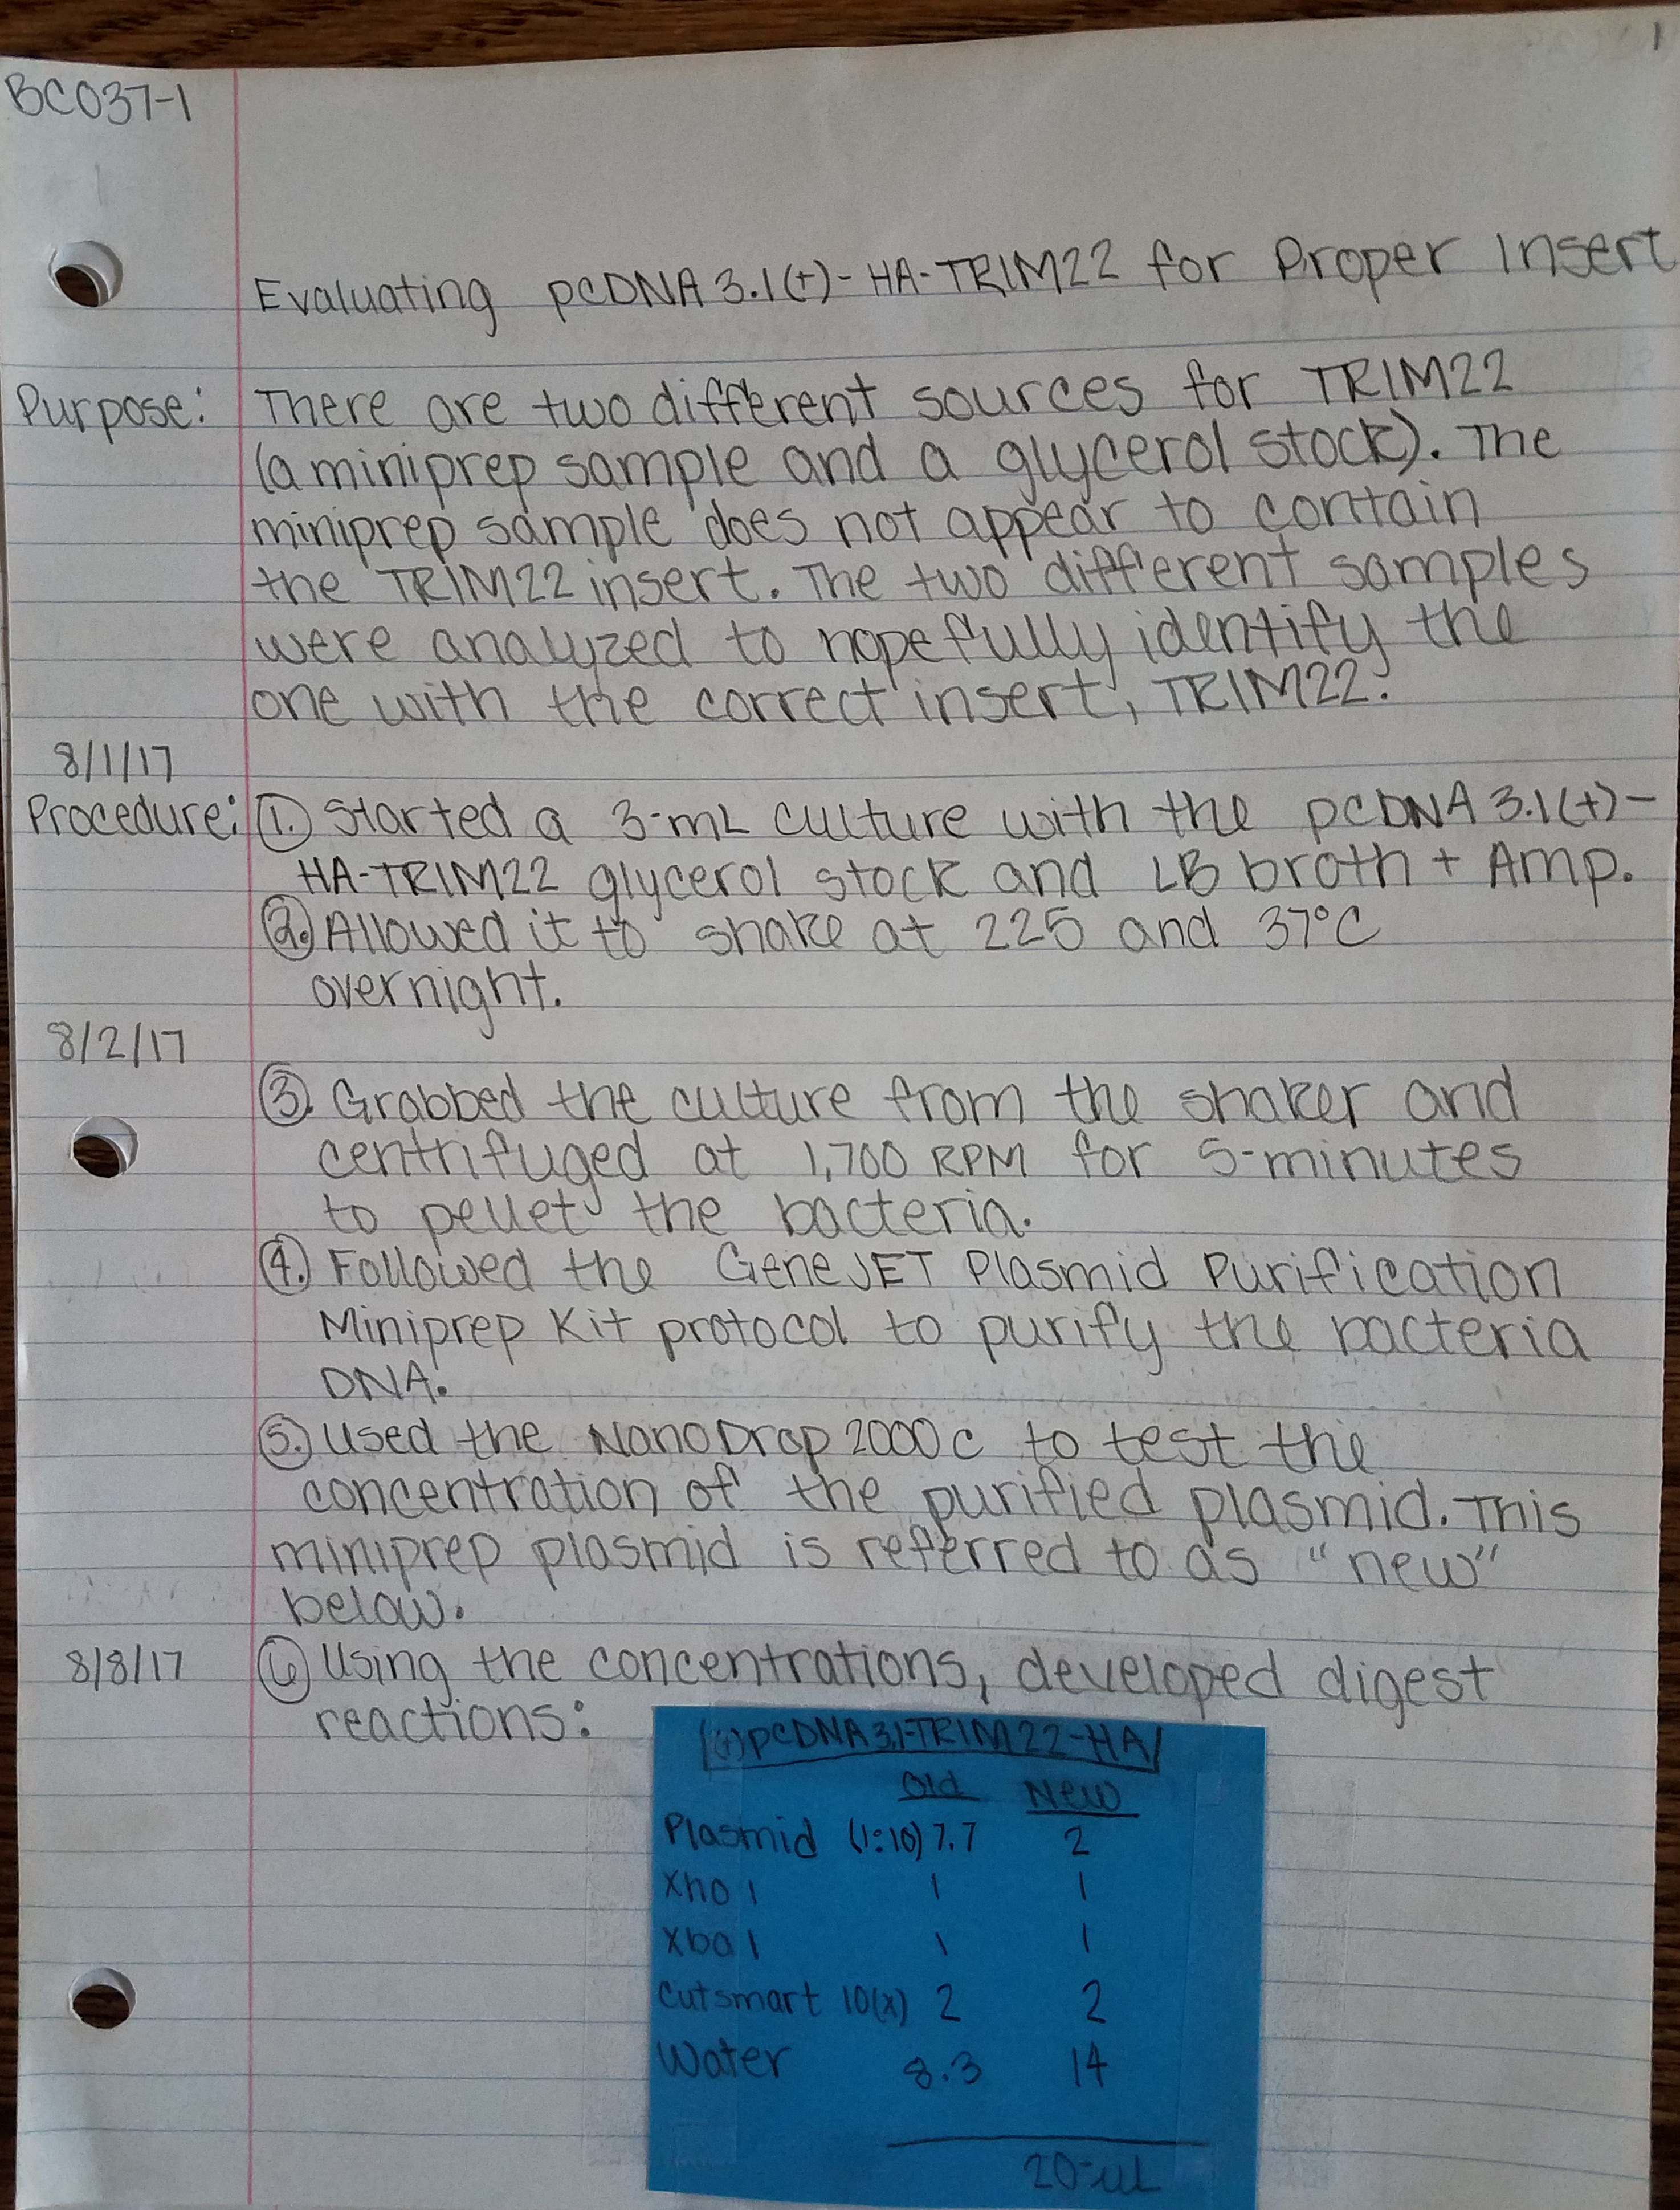 1
BC037-1
Evaluating pcDNA3.1(+)-HA-TRIM22 for Proper Insert
Purpose: There are two different sources for TRIM22
(a miniprep sample and a glycerol stock). The
miniprep sample does not appear to contain
the TRIM22 insert. The two different samples
were analyzed to hopefully identify the
one with the correct insert, TRIM22.
8/1/17
Procedure: 1. Started a 3-mL culture with the pcDNA3.1(+)-
HA-TRIM22 glycerol stock and LB broth + Amp.
2. Allowed it to shake at 225 and 37°C
overnight.
8/2/17
3. Grabbed the culture from the shaker and
centrifuged at 1,700 RPM for 5-minutes
to pellet the bacteria.
4. Followed the GeneJET Plasmid Purification
Miniprep Kit protocol to purify the bacteria
DNA.
5. Used the NanoDrop 2000c to test the
concentration of the purified plasmid. This
miniprep plasmid is referred to as "new"
below.
8/8/17 6 Using the concentrations, developed digest
reactions:
(+)pcDNA3.1-TRIM22-HA
Old New
Plasmid (1:10) 7.7 2
Xho 1 1 1
Xba 1 1 1
Cutsmart 10(x) 2 2
Water 8.3 14
20-uL